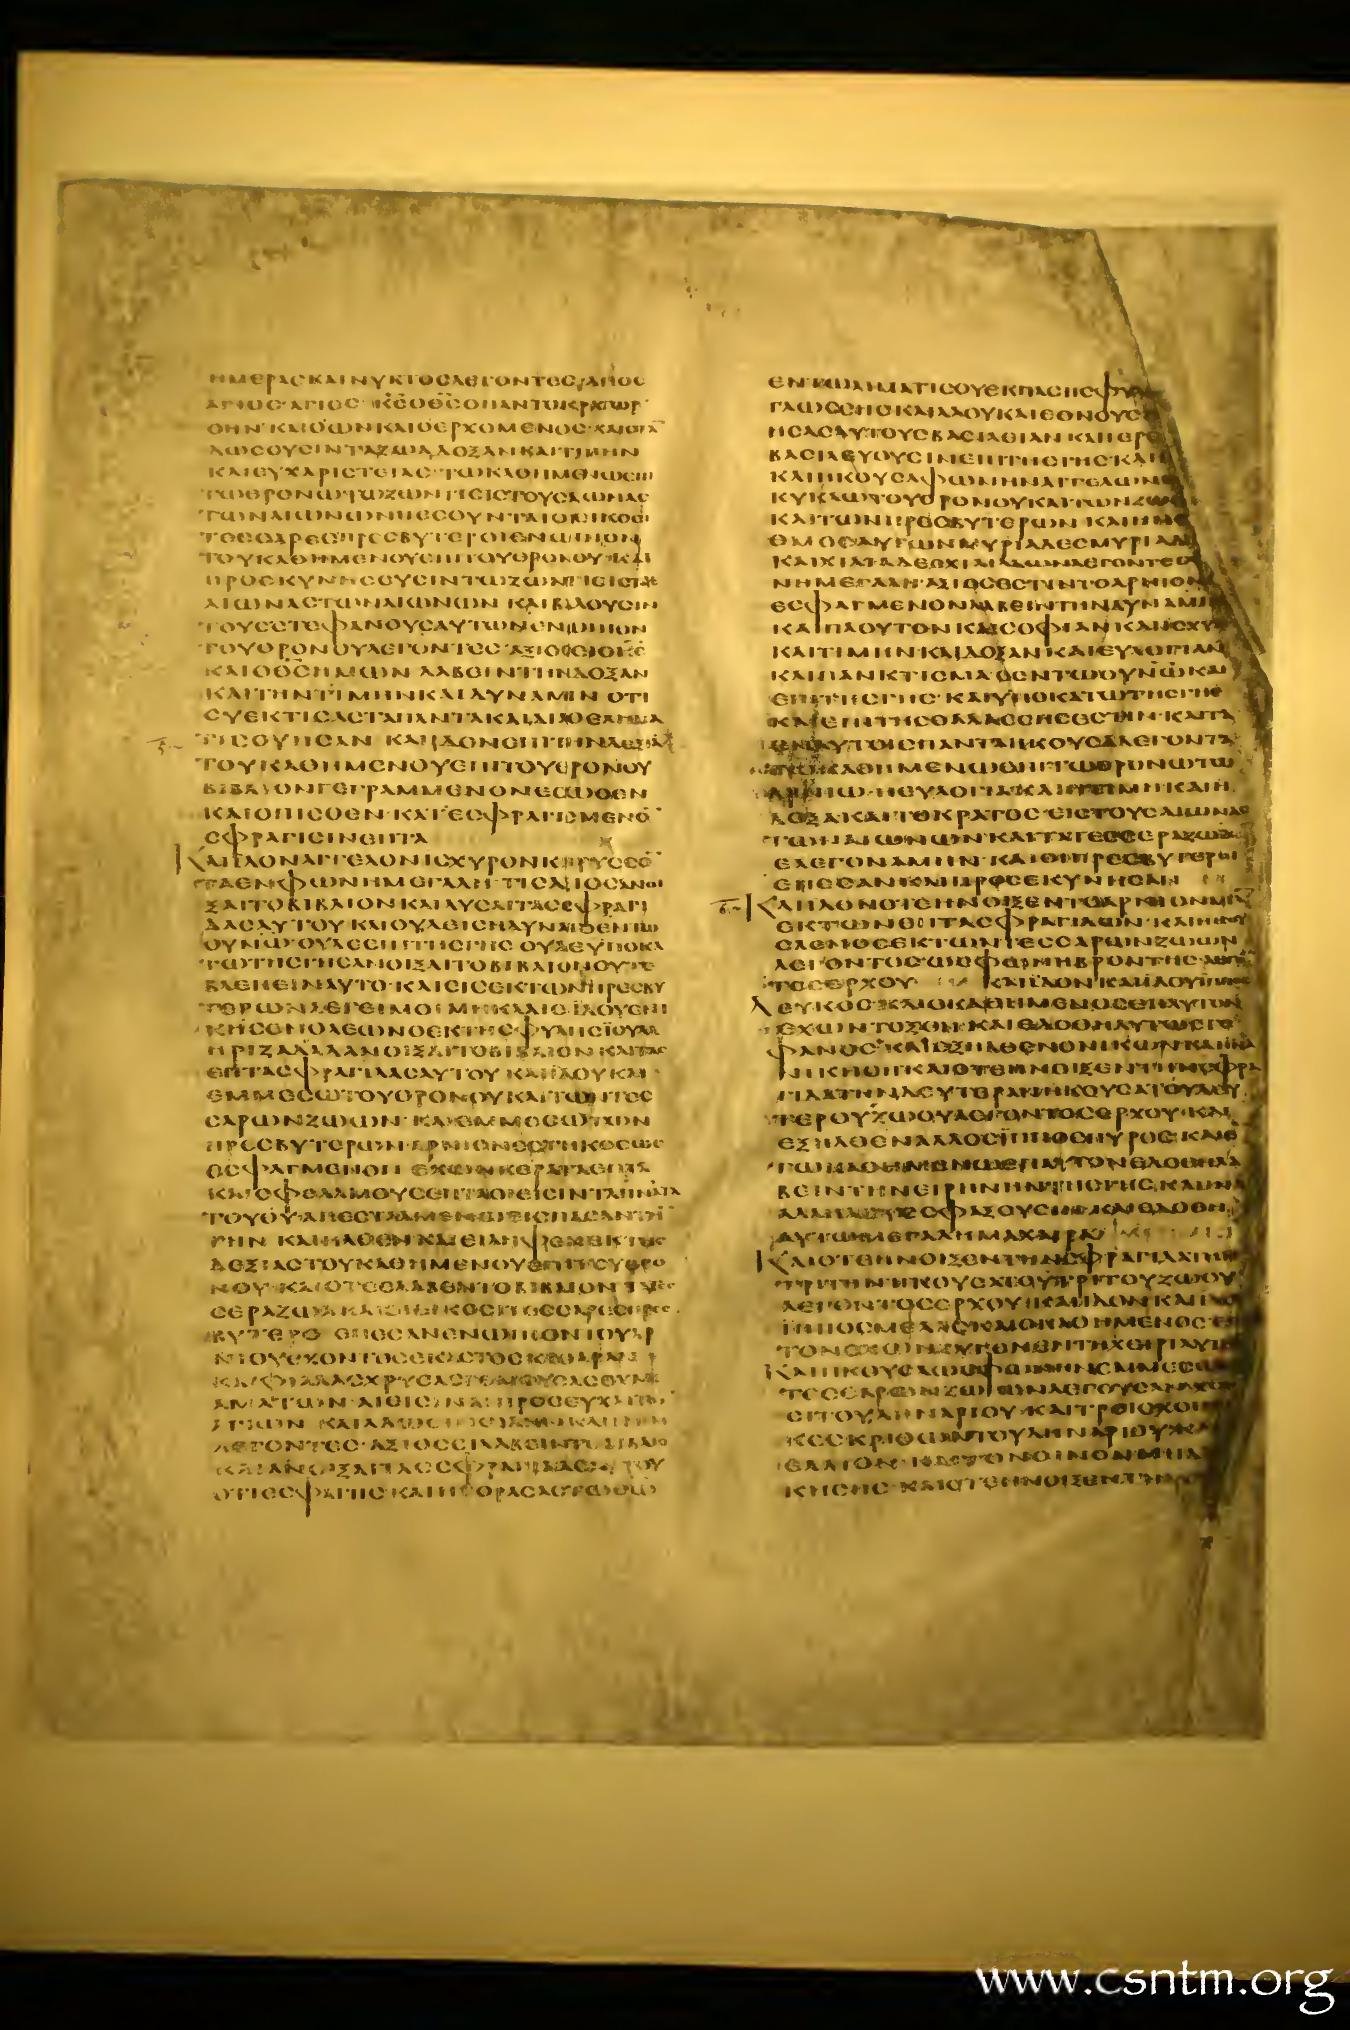 ΗΜΕΡΑΣΚΑΙΝΥΚΤΟΣΛΕΓΟΝΤΕΣΑΓΙΟΣ
ΑΓΙΟΣ·ΑΓΙΟΣ·Κ̅Σ̅Ο̅Θ̅Σ̅ΟΠΑΝΤΟΚΡΑΤΩΡ
ΟΗΝ·ΚΑΙΟΩΝΚΑΙΟΕΡΧΟΜΕΝΟΣ·
ΔΩΣΟΥΣΙΝΤΑΖΩΑΔΟΞΑΝΚΑΙΤΙΜΗΝ
ΚΑΙΕΥΧΑΡΙΣΤΕΙΑΣ·ΤΩΚΑΘΗΜΕΝΩΕΠΙ
ΤΩΘΡΟΝΩΤΩΖΩΝΤΙΕΙΣΤΟΥΣΑΙΩΝΑΣ
ΤΩΝΑΙΩΝΩΝΠΕΣΟΥΝΤΑΙΟΙΕΙΚΟΣΙ
ΤΕΣΣΑΡΕΣΠΡΕΣΒΥΤΕΡΟΙΕΝΩΠΙΟΝ
ΤΟΥΚΑΘΗΜΕΝΟΥΕΠΙΤΟΥΘΡΟΝΟΥ·ΚΑΙ
ΠΡΟΣΚΥΝΗΣΟΥΣΙΝΤΩΖΩΝΤΙΕΙΣΤΟΥΣ
ΑΙΩΝΑΣΤΩΝΑΙΩΝΩΝ ΚΑΙΒΑΛΟΥΣΙΝ
ΤΟΥΣΣΤΕΦΑΝΟΥΣΑΥΤΩΝΕΝΩΠΙΟΝ
ΤΟΥΘΡΟΝΟΥΛΕΓΟΝΤΕΣ·ΑΞΙΟΣΕΙΟΚ̅Σ̅
ΚΑΙΟΘ̅Σ̅ΗΜΩΝ ΛΑΒΕΙΝΤΗΝΔΟΞΑΝ
ΚΑΙΤΗΝΤΙΜΗΝΚΑΙΔΥΝΑΜΙΝ ΟΤΙ
ΣΥΕΚΤΙΣΑΣΤΑΠΑΝΤΑΚΑΙΔΙΑΤΟΘΕΛΗΜΑ
ΤΙΣΟΥΗΣΑΝ ΚΑΙΙΔΟΝΕΠΙΤΗΝΔΕΞΙΑ
ΤΟΥΚΑΘΗΜΕΝΟΥΕΠΙΤΟΥΘΡΟΝΟΥ
ΒΙΒΛΙΟΝΓΕΓΡΑΜΜΕΝΟΝΕΣΩΘΕΝ
ΚΑΙΟΠΙΣΘΕΝ·ΚΑΤΕΣΦΡΑΓΙΣΜΕΝΟ̅
ΣΦΡΑΓΙΣΙΝΕΠΤΑ
ΚΑΙΙΔΟΝΑΓΓΕΛΟΝΙΣΧΥΡΟΝΚΗΡΥΣΣΟ̅
ΤΑΕΝΦΩΝΗΜΕΓΑΛΗ·ΤΙΣΑΞΙΟΣΑΝΟΙ
ΞΑΙΤΟΒΙΒΛΙΟΝΚΑΙΛΥΣΑΙΤΑΣΣΦΡΑΓΙ
ΔΑΣΑΥΤΟΥ ΚΑΙΟΥΔΕΙΣΗΔΥΝΑΤΟΕΝΤΩ
ΟΥΝΩ·ΟΥΔΕΕΠΙΤΗΣΓΗΣ ΟΥΔΕΥΠΟΚΑ
ΤΩΤΗΣΓΗΣΑΝΟΙΞΑΙΤΟΒΙΒΛΙΟΝΟΥΤΕ
ΒΛΕΠΕΙΝΑΥΤΟ·ΚΑΙΕΙΣΕΚΤΩΝΠΡΕΣΒΥ
ΤΕΡΩΝΛΕΓΕΙΜΟΙΜΗΚΛΑΙΕ·ΙΔΟΥΕΝΙ
ΚΗΣΕΝΟΛΕΩΝΟΕΚΤΗΣΦΥΛΗΣΪΟΥΔΑ
ΗΡΙΖΑΔΑΔΑΝΟΙΞΑΙΤΟΒΙΒΛΙΟΝΚΑΙΤΑΣ
ΕΠΤΑΣΦΡΑΓΙΔΑΣΑΥΤΟΥ ΚΑΙΙΔΟΥΚΑΙ
ΕΜΜΕΣΩΤΟΥΘΡΟΝΟΥΚΑΙΤΩΝΤΕΣ
ΣΑΡΩΝΖΩΩΝ·ΚΑΙΕΜΜΕΣΩΤΩΝ
ΠΡΕΣΒΥΤΕΡΩΝ·ΑΡΝΙΟΝΕΣΤΗΚΟΣΩΣ
ΕΣΦΑΓΜΕΝΟΝ ΕΧΩΝΚΕΡΑΤΑΕΠΤΑ
ΚΑΙΟΦΘΑΛΜΟΥΣΕΠΤΑΟΙΕΙΣΙΝΤΑΠΝ̅Α̅ΤΑ
ΤΟΥΘ̅Υ̅·ΑΠΕΣΤΑΛΜΕΝΟΙΕΙΣΠΑΣΑΝΤΗ̅
ΓΗΝ ΚΑΙΗΛΘΕΝ ΚΑΙΕΙΛΗΦΕΝΕΚΤΗΣ
ΔΕΞΙΑΣΤΟΥΚΑΘΗΜΕΝΟΥΕΠΙΤΟΥΘΡΟ
ΝΟΥ·ΚΑΙΟΤΕΕΛΑΒΕΝΤΟΒΙΒΛΙΟΝ
ΣΕΡΑΖΩΑΚΑΙ
ΒΥΤΕΡΟΙ ΕΠΕΣΑΝΕΝΩΠΙΟΝΤΟΥΑΡ
ΝΙΟΥΕΧΟΝΤΕΣΕΚΑΣΤΟΣΚΙΘΑΡΑΝ
ΚΑΙΦΙΑΛΑΣΧΡΥΣΑΣΓΕΜΟΥΣΑΣΘΥΜΙ
ΑΜΑΤΩΝ·ΑΙΕΙΣΙΝΑΙΠΡΟΣΕΥΧΑΙΤΩ̅
ΑΓΙΩΝ ΚΑΙΑΔΩΣΙΝ
ΛΕΓΟΝΤΕΣ·ΑΞΙΟΣΕΙΛΑΒΕΙΝΤΟΒΙΒΛΙΟ̅
ΚΑΙΑΝΟΙΞΑΙΤΑΣΣΦΡΑΓΙΔΑΣΑΥΤΟΥ
ΟΤΙΕΣΦΑΓΗΣ·ΚΑΙΗΓΟΡΑΣΑΣΤΩΘΩ
ΕΝΤΩΑΙΜΑΤΙΣΟΥΕΚΠΑΣΗΣΦΥ
ΓΛΩΣΣΗΣΚΑΙΛΑΟΥΚΑΙΕΘΝΟΥΣ
ΗΣΑΣΑΥΤΟΥΣΒΑΣΙΛΕΙΑΝ ΚΑΙΙΕΡ
ΒΑΣΙΛΕΥΟΥΣΙΝΕΠΙΤΗΣΓΗΣ·ΚΑΙ
ΚΑΙΗΚΟΥΣΑΦΩΝΗΝΑΓΓΕΛΩΝ
ΚΥΚΛΩΤΟΥΘΡΟΝΟΥΚΑΙΤΩΝΖΩ
ΚΑΙΤΩΝΠΡΕΣΒΥΤΕΡΩΝ ΚΑΙΗΝΟ
ΘΜΟΣΑΥΤΩΝΜΥΡΙΑΔΕΣΜΥΡΙΑΔ
ΚΑΙΧΙΛΙΑΔΕΣΧΙΛΙΑΔΩΝΛΕΓΟΝΤΕΣ
ΝΗΜΕΓΑΛΗ·ΑΞΙΟΣΕΣΤΙΝΤΟΑΡΝΙΟΝ
ΕΣΦΑΓΜΕΝΟΝΛΑΒΕΙΝΤΗΝΔΥΝΑΜΙ
ΚΑΙΠΛΟΥΤΟΝΚΑΙΣΟΦΙΑΝ ΚΑΙΙΣΧΥ
ΚΑΙΤΙΜΗΝ·ΚΑΙΔΟΞΑΝ·ΚΑΙΕΥΛΟΓΙΑΝ
ΚΑΙΠΑΝΚΤΙΣΜΑΟΕΝΤΩΟΥΝΩΚΑΙ
ΕΠΙΤΗΣΓΗΣ·ΚΑΙΥΠΟΚΑΤΩΤΗΣΓΗΣ
ΚΑΙΕΠΙΤΗΣΘΑΛΑΣΣΗΣΕΣΤΙΝ·ΚΑΙΤΑ
ΕΝΑΥΤΟΙΣΠΑΝΤΑΗΚΟΥΣΑΛΕΓΟΝΤΑ
ΤΩΚΑΘΗΜΕΝΩΕΠΙΤΩΘΡΟΝΩΤΩ
ΑΡΝΙΩ·ΗΕΥΛΟΓΙΑΚΑΙΗΤΙΜΗΚΑΙΗ
ΔΟΞΑΚΑΙΤΟΚΡΑΤΟΣ·ΕΙΣΤΟΥΣΑΙΩΝΑΣ
ΤΩΝΑΙΩΝΩΝ·ΚΑΙΤΑΤΕΣΣΕΡΑΖΩΑ
ΕΛΕΓΟΝΑΜΗΝ·ΚΑΙΟΙΠΡΕΣΒΥΤΕΡΟΙ
ΕΠΕΣΑΝΚΑΙΠΡΟΣΕΚΥΝΗΣΑΝ
ΚΑΙΙΔΟΝΟΤΕΗΝΟΙΞΕΝΤΟΑΡΝΙΟΝΜΙΑ̅
ΕΚΤΩΝΕΠΤΑΣΦΡΑΓΙΔΩΝ·ΚΑΙΗΚΟΥ
ΣΑΕΝΟΣΕΚΤΩΝΤΕΣΣΑΡΩΝΖΩΩΝ
ΛΕΓΟΝΤΟΣΩΣΦΩΝΗΒΡΟΝΤΗΣ·
ΤΟΣΕΡΧΟΥ ΚΑΙΪΔΟΝΚΑΙΙΔΟΥΪΠΠΟΣ
ΛΕΥΚΟΣ·ΚΑΙΟΚΑΘΗΜΕΝΟΣΕΠΑΥΤΟΝ
ΕΧΩΝΤΟΞΟΝ·ΚΑΙΕΔΟΘΗΑΥΤΩΣΤΕ
ΦΑΝΟΣ·ΚΑΙΕΞΗΛΘΕΝΟΝΙΚΩΝΚΑΙΙΝΑ
ΝΙΚΗΣΗ·ΚΑΙΟΤΕΗΝΟΙΞΕΝΤΗΝΣΦΡΑ
ΓΙΔΑΤΗΝΔΕΥΤΕΡΑΝΗΚΟΥΣΑΤΟΥΔΕΥ
ΤΕΡΟΥΖΩΟΥΛΕΓΟΝΤΟΣΕΡΧΟΥ·ΚΑΙ
ΕΞΗΛΘΕΝΑΛΛΟΣΪΠΠΟΣΠΥΡΟΣ·ΚΑΙΕ
ΤΩΚΑΘΗΜΕΝΩΕΠΑΥΤΟΝΕΔΟΘΗΛΑ
ΒΕΙΝΤΗΝΕΙΡΗΝΗΝΤΗΣΓΗΣ·ΚΑΙΙΝΑ
ΑΛΛΗΛΟΥΣΣΦΑΞΟΥΣΙΝ·ΚΑΙΕΔΟΘΗ
ΑΥΤΩΜΕΓΑΛΗΜΑΧΑΙΡΑ
ΚΑΙΟΤΕΗΝΟΙΞΕΝΤΗΝΣΦΡΑΓΙΔΑΤΗΝ
ΤΡΙΤΗΝ·ΗΚΟΥΣΑΤΟΥΤΡΙΤΟΥΖΩΟΥ
ΛΕΓΟΝΤΟΣΕΡΧΟΥ·ΚΑΙΙΔΟΝΚΑΙΙΔ
ΪΠΠΟΣΜΕΛΑΣΚΑΙΟΚΑΘΗΜΕΝΟΣΕΠ
ΤΟΝΕΧΩΝΖΥΓΟΝΕΝΤΗΧΕΙΡΙΑΥΤ
ΚΑΙΗΚΟΥΣΑΩΣΦΩΝΗΝΕΜΜΕΣΩ
ΤΕΣΣΑΡΩΝΖΩΩΝΛΕΓΟΥΣΑΝ
ΣΙΤΟΥΔΗΝΑΡΙΟΥ·ΚΑΙΤΡΕΙΣΧΟΙ
ΚΕΣΚΡΙΘΩΝΤΟΥΔΗΝΑΡΙΟΥ·ΚΑΙ
ΕΛΑΙΟΝ·ΚΑΙΤΟΝΟΙΝΟΝΜΗΑΔ
ΚΗΣΗΣ·ΚΑΙΟΤΕΗΝΟΙΞΕΝΤΗΝ
www.csntm.org